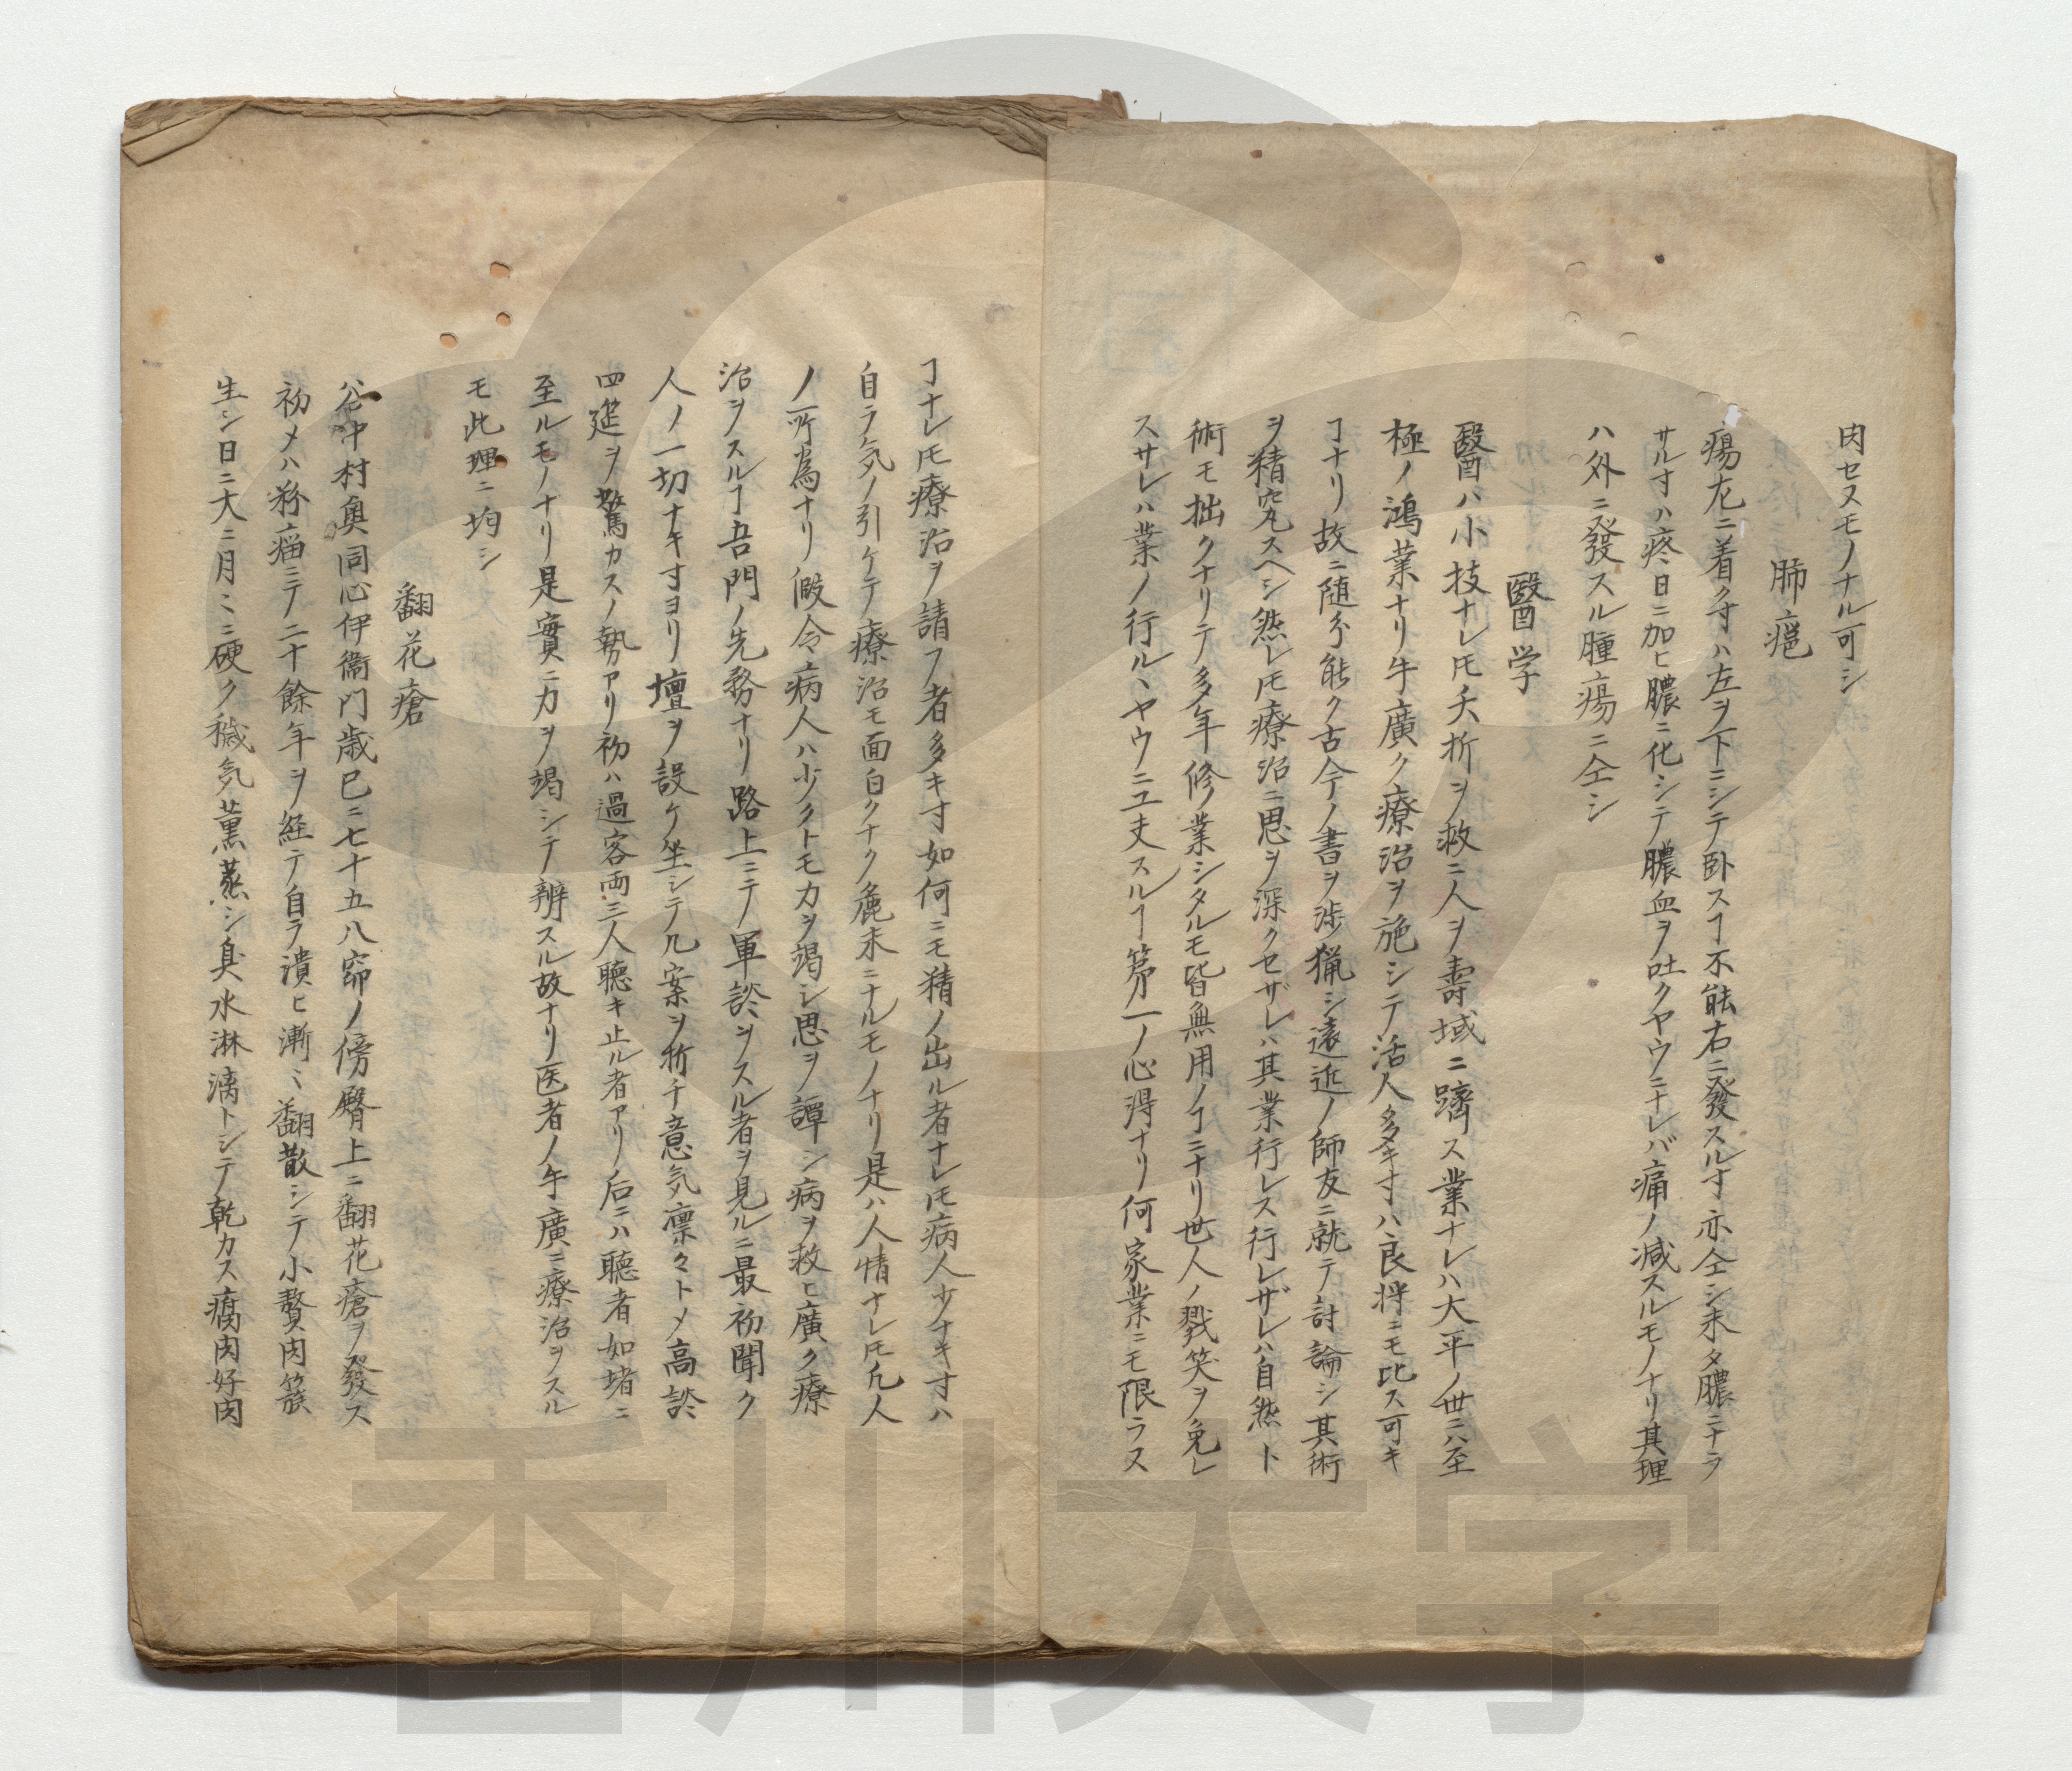 肉セヌモノナル可シ
肺癰
瘍左ニ着ク寸ハ左ヲ下ニシテ卧スヿ不能右ニ發スル寸亦仝シ未タ膿ニナラ
サル寸ハ疼日ニ加ヒ膿ニ化シテ膿血ヲ吐クヤウニナレバ痛ノ減スルモノナリ其理
ハ外ニ發スル腫瘍ニ仝シ
醫学
醫ハ小技ナレ𪜈夭折ヲ救ニ人ヲ壽域ニ躋ス業ナレハ大平ノ世ニハ至
極ノ鴻業ナリ手廣ク療治ヲ施シテ活人多キ寸ハ良将ニモ比ス可キ
ヿナリ故ニ随分能ク古今ノ書ヲ渉猟シ遠近ノ師友ニ就テ討論シ其術
ヲ精究スヘシ然レ𪜈療治ニ思ヲ深クセザレハ其業行レス行レザレハ自然ト
術モ拙クナリテ多年修業シタルモ皆無用ノヿニナリ世人ノ戮笑ヲ免レ
スサレハ業ノ行ルヽヤウニ工夫スルヿ第一ノ心得ナリ何家業ニモ限ラス
ヿナレ𪜈療治ヲ請フ者多キ寸如何ニモ精ノ出ル者ナレ𪜈病人少ナキ寸ハ
自ラ気ノ引ケテ療治モ面白クナク麁末ニナルモノナリ是ハ人情ナレ𪜈凡人
ノ所為ナリ假令病人ハ少クトモ力ヲ竭シ思ヲ譚シ病ヲ救ヒ廣ク療
治ヲスルヿ吾門ノ先務ナリ路上ニテ軍談ヲスル者ヲ見ルニ最初聞ク
人ノ一切ナキ寸ヨリ壇ヲ設ケ坐シテ几案ヲ折チ意気凛々トメ高談
四筵ヲ驚カスノ勢アリ初ハ過客両三人聴キ止ル者アリ后ニハ聴者如堵ニ
至ルモノナリ是實ニ力ヲ竭シテ辨スル故ナリ医者ノ手廣ニ療治ヲスル
モ此理ニ均シ
翻花瘡
谷中村奥同心伊衛門歳已ニ七十五八窌ノ傍臀上ニ翻花瘡ヲ發ス
初メハ粉瘤ニテ二十餘年ヲ経テ自ラ潰ヒ漸ヽ翻散シテ小贅肉簇
生シ日ニ大ニ月ヽニ硬ク穢気薫蒸シ臭水淋漓トシテ乾カス腐肉好肉